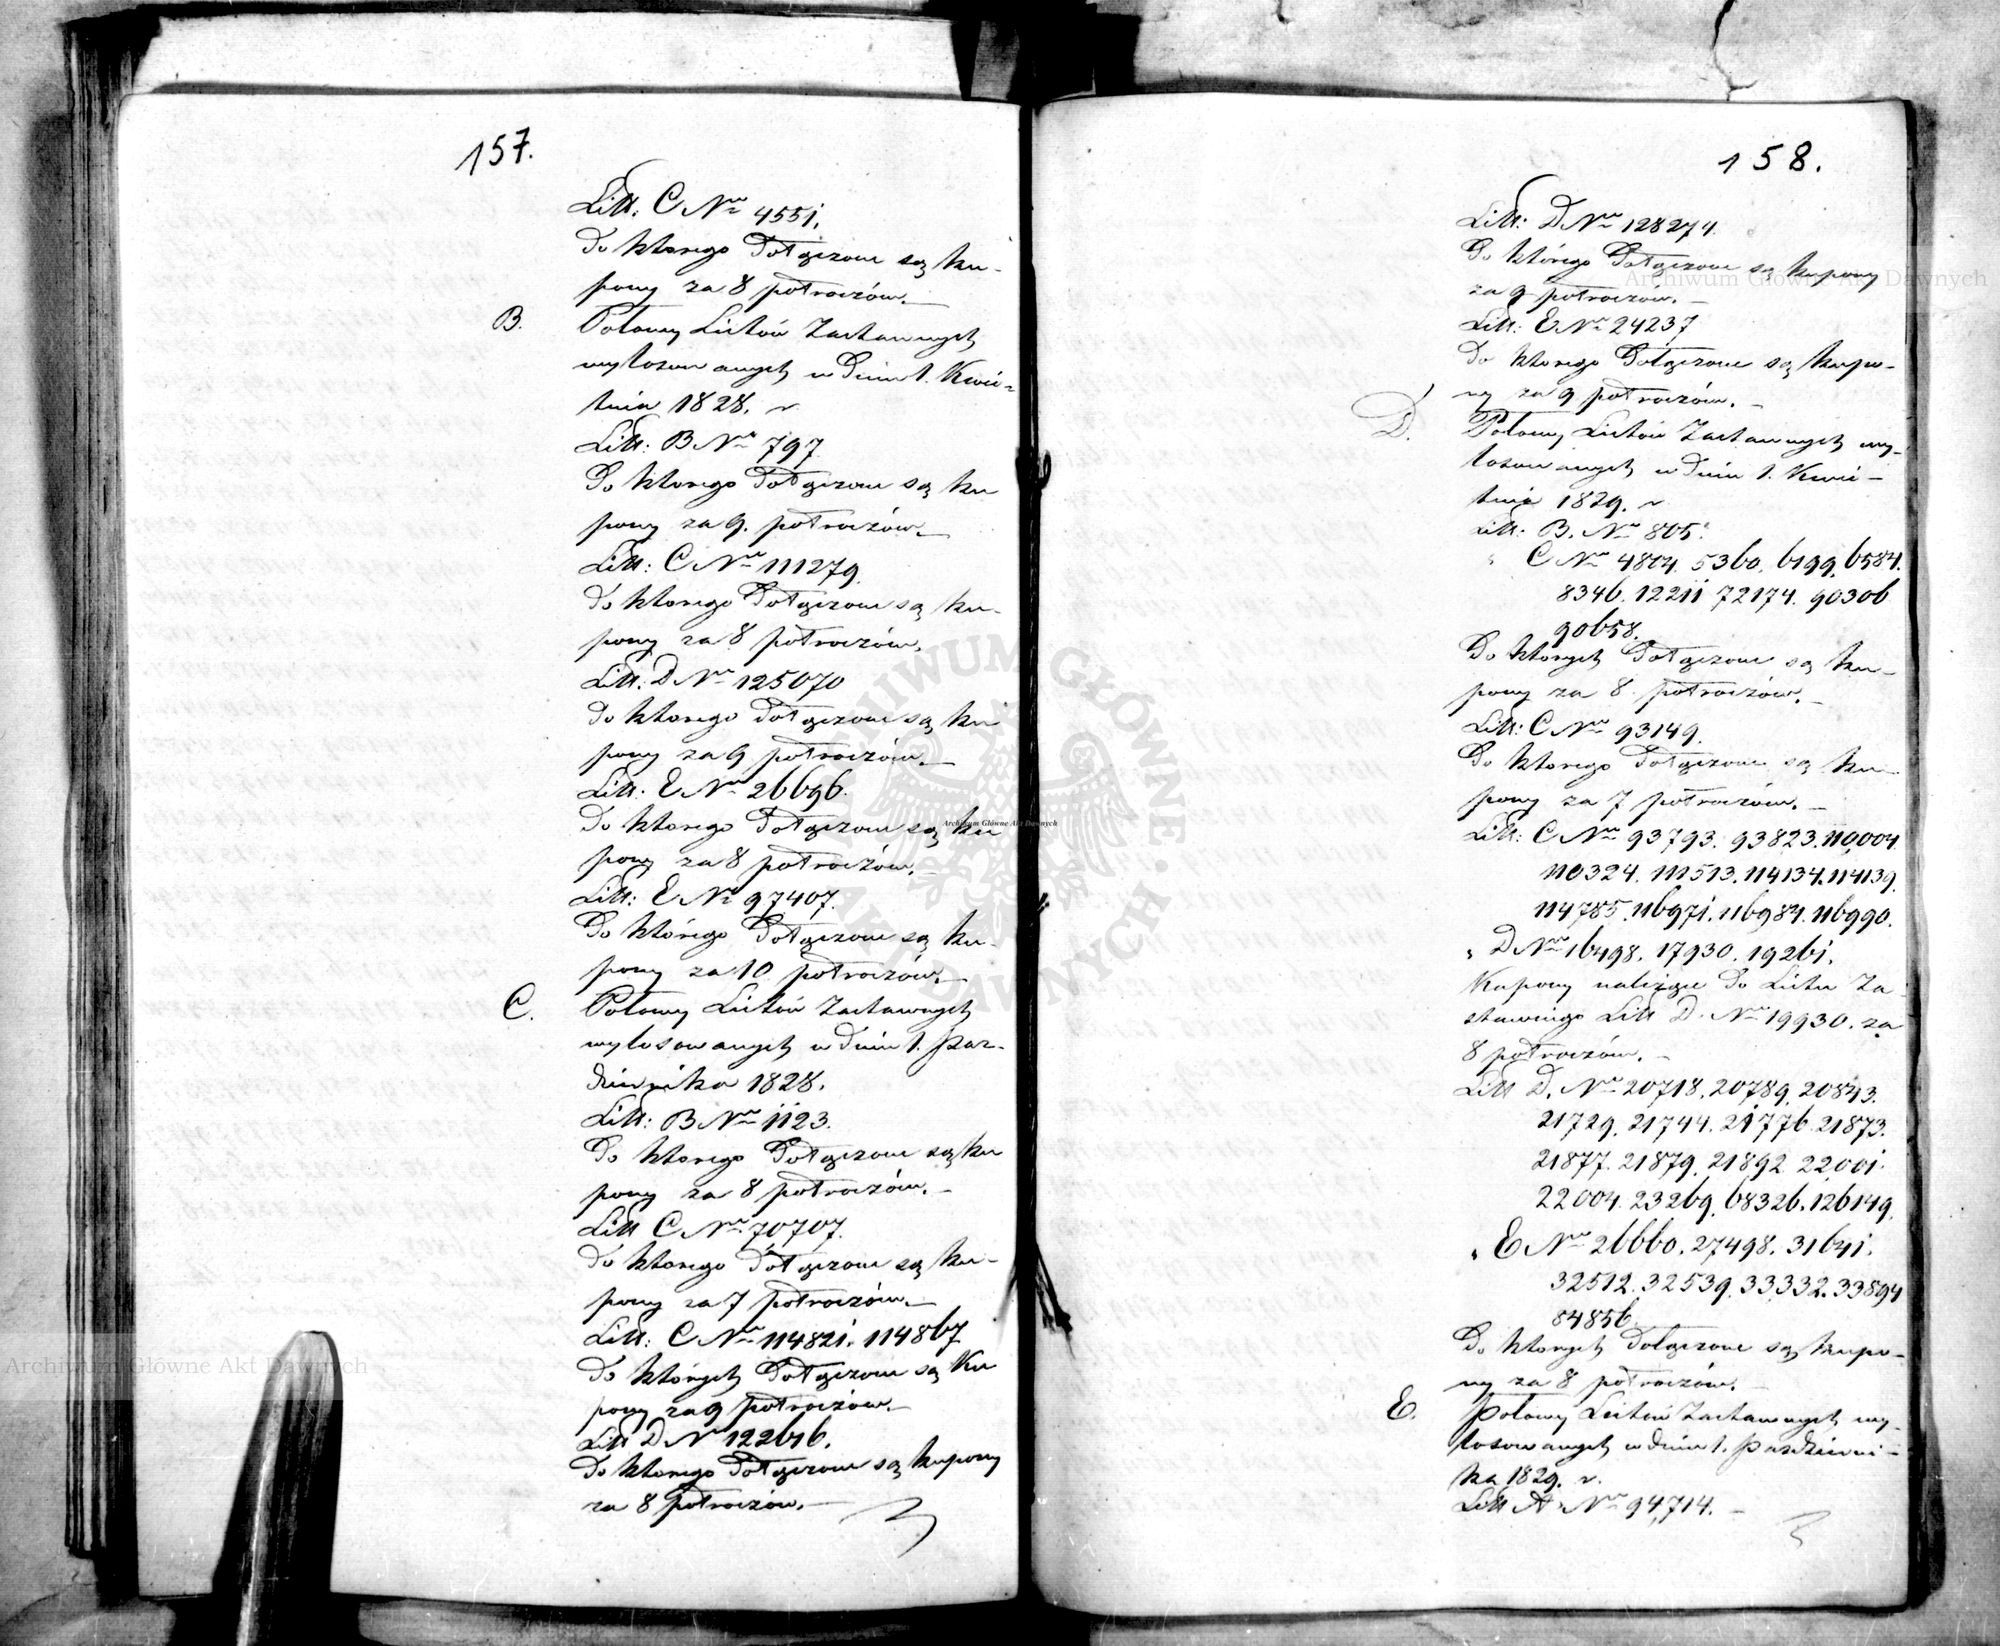 157.
Litt: C Nro 4551.
do którego dołączone są ku-
pony za 8 półroczów.—
B. Połowy Listów Zastawnych
wylosowanych w dniu 1. Kwie-
tnia 1828. r
Litt: B Nro 797.
Do którego dołączone są ku
pony za 9. półroczów.—
Litt: C Nro 111279.
do którego dołączone są ku-
pony za 8 półroczów.
Litt: D Nro 125070
do którego dołączone są ku
pony za 9 półroczów.—
Litt: E Nro 26696.
Do którego dołączone są ku
pony za 8 półroczów.—
Litt: E Nro 97407.
Do którego dołączone są ku-
pony za 10 półroczów.—
C. Połowy Listów Zastawnych
wylosowanych w dniu 1. Paz-
dziernika 1828.
Litt: B Nro 1123.
Do którego dołączone są ku
pony za 8 półroczów.—
Litt C Nro 70707.
do którego dołączone są ku-
pony za 7 półroczów.—
Litt: C Nro 114821. 114867
Do których dołączone są Ku
pony za 9 półroczów.—
Litt D Nro 122616.
Do którego dołączone są kupony
za 8 półroczów.—
158.
Litt: D Nro 128274.
Do którego dołączone są kupony
za 9 półroczów.—
Litt: E Nro 24237
do którego dołączone są kupo-
ny za 9 półroczów.—
D. Połowy Listów Zastawnych wy-
losowanych w dniu 1. Kwie-
tnia 1829. r
Litt: B. Nro 805.
" C Nro 4804. 5360. 6199. 6584.
8346. 12211 72174. 90306
90658.
Do których dołączone są ku-
pony za 8 półroczów.—
Litt: C Nro 93149.
Do którego dołączone są ku-
pony za 7 półroczów.—
Litt: C Nro 93793. 93823. 110,004.
110324. 111513. 114134. 114139.
114785. 116971. 116984. 116990.
" D Nro 16498. 17930. 19261.
Kupony należące do Listu Za
stawnego Litt D. Nro 19930. za
8 półroczów.—
Litt D. Nro 20718. 20789. 20843.
21729. 21744. 21776. 21873.
21877. 21879. 21892. 22001.
22004. 23269. 68326. 126149.
" E Nro 26660. 27498. 31641.
32512. 32539. 33332. 33894
84856.
Do których dołączone są kupo-
ny za 8 półroczów.—
E. Połowy Listów Zastawnych wy-
losowanych w dniu 1. Pazdzierni-
ka 1829. r.
Litt A Nro 94,714.—
Archiwum Główne Akt Dawnych
Archiwum Główne Akt Dawnych
Archiwum Główne Akt Dawnych
ARCHIWUM GŁÓWNE AKT DAWNYCH